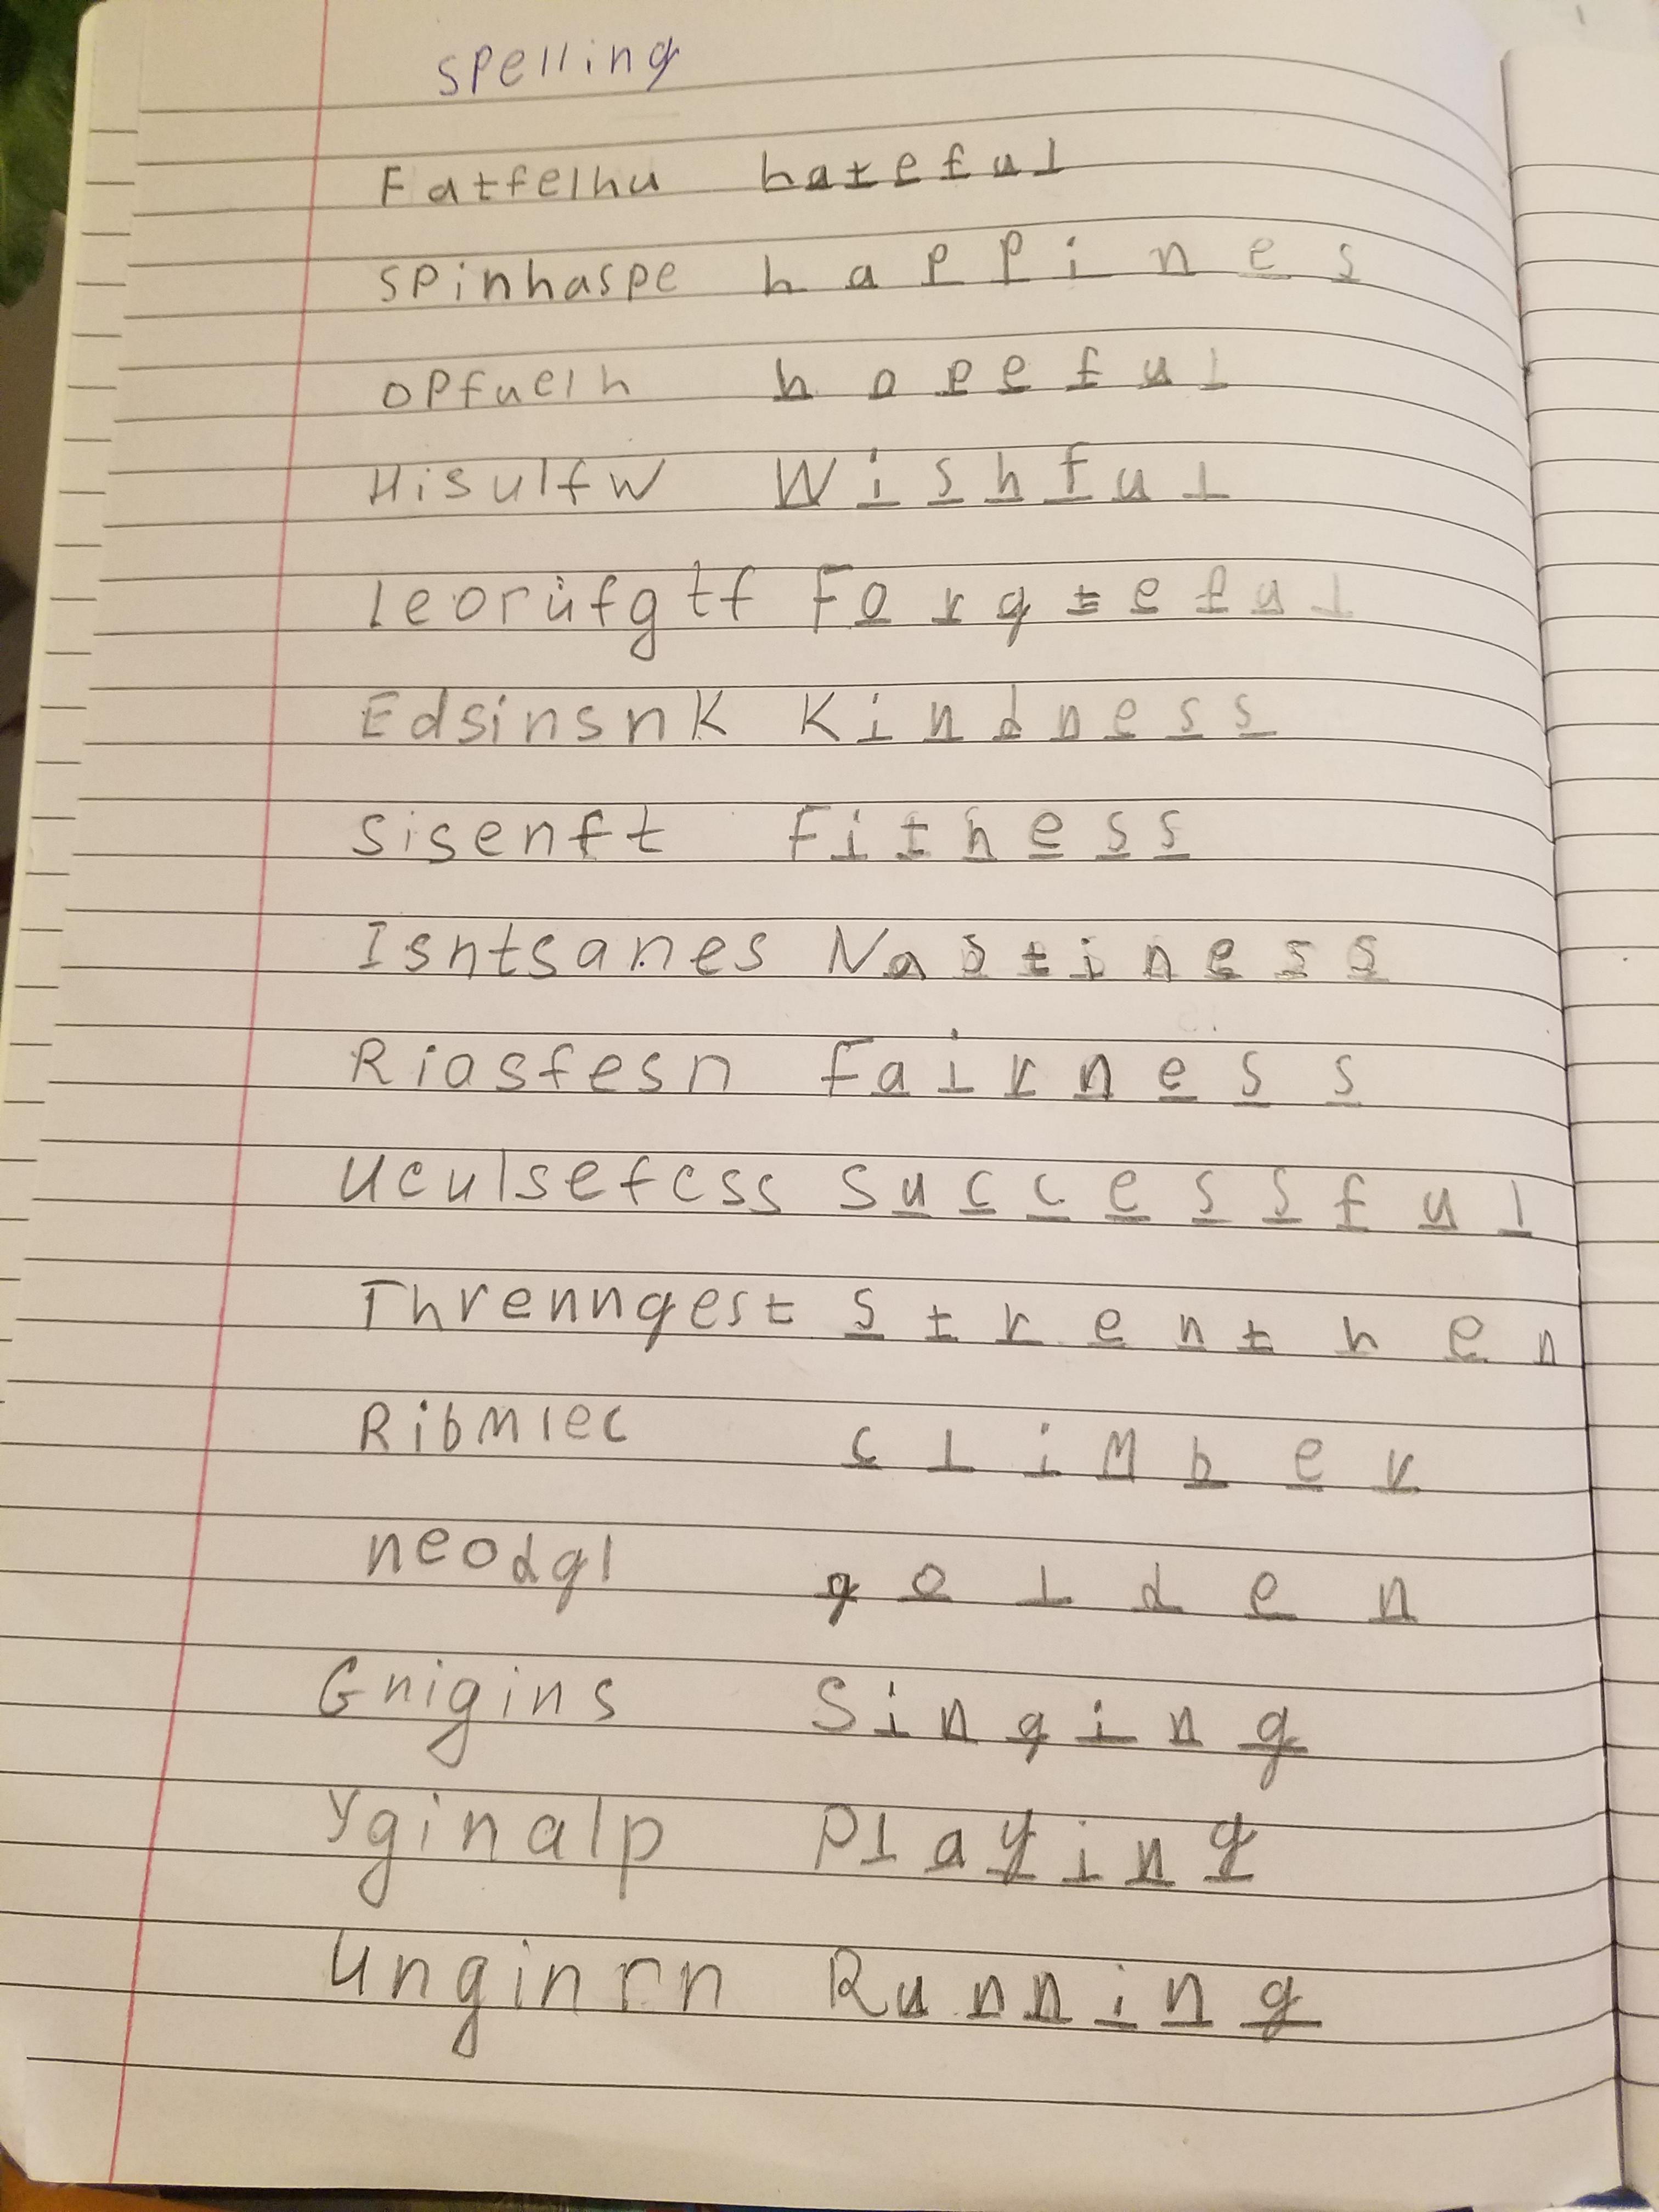 spelling
Fatfelhu hateful
spinhaspe happines
opfuelh hopeful
Hisulfw Wishful
leorufgtf Forgteful
Edsinsnk Kindness
sisenft Fitness
Isntsanes Nastiness
Riasfesn Fairness
Uculsefcss Successful
Threnngest strenthen
Ribmlec climber
neodgl golden
Gnigins Singing
Yginalp Playing
Unginrn Running